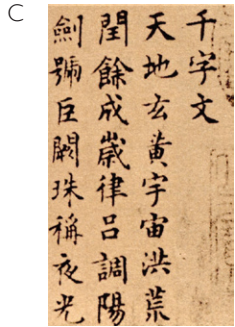 C
千字文
天地玄黃宇宙洪荒
閏餘成歲律呂調陽
劍號巨闕珠稱夜光